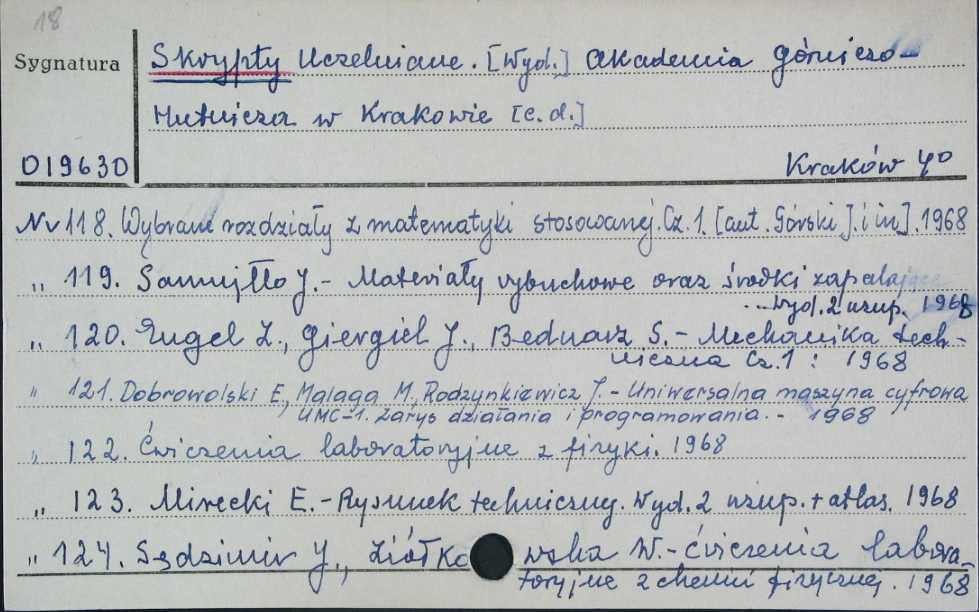 18
Sygnatura
Skrypty Uczelniane. [Wyd.] Akademia Górniczo-
Hutnicza w Krakowie [c.d.]
D19630
Kraków 4º
Nr 118. Wybrane rozdziały z matematyki stosowanej. Cz. 1. [aut. Górski J. i in]. 1968
" 119. Samujłło J. - Materiały wybuchowe oraz środki zapalające
... Wyd. 2 uzup. 1968
" 120. Engel Z., Giergiel J., Bednarz S. - Mechanika tech-
niczna Cz. 1 : 1968
" 121. Dobrowolski E., Malaga M., Rodzynkiewicz J. - Uniwersalna maszyna cyfrowa
UMC-1. Zarys działania i programowania. - 1968
" 122. Ćwiczenia laboratoryjne z fizyki. 1968
" 123. Mirecki E. - Rysunek techniczny. Wyd. 2 uzup. + atlas. 1968
" 124. Sędzimir J., Ziółkowska W. - ćwiczenia labora-
toryjne z chemii fizycznej. 1968